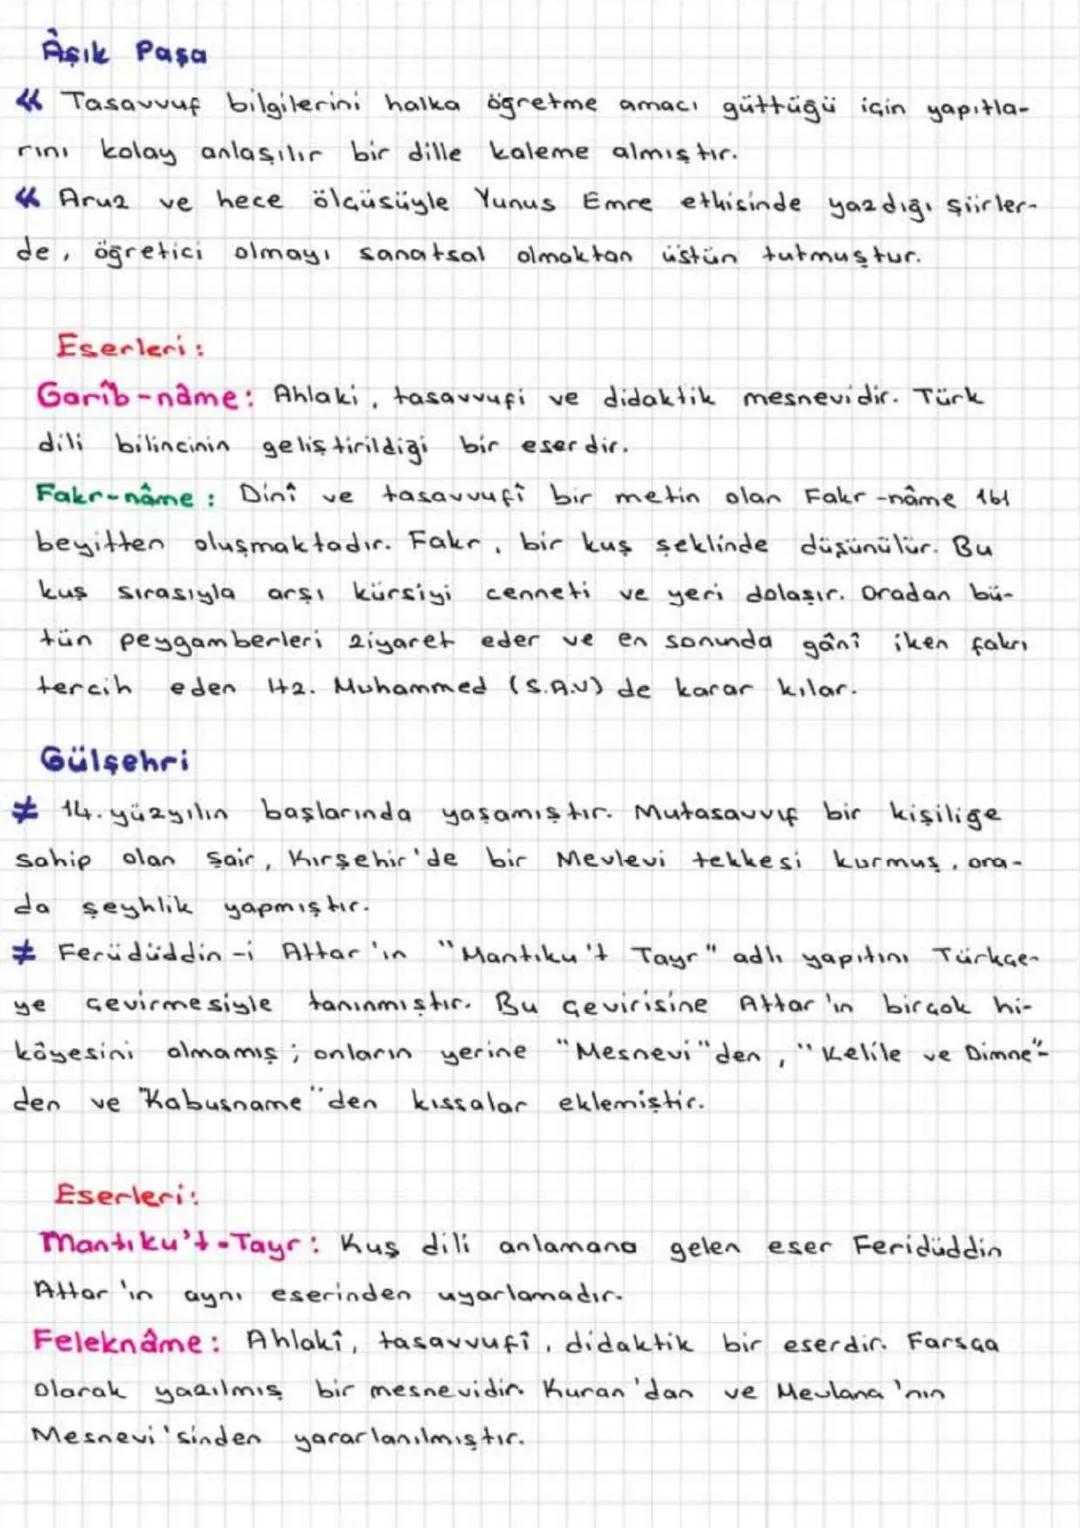 Âşık Paşa
« Tasavvuf bilgilerini halka öğretme amacı güttüğü için yapıtla-
rını kolay anlaşılır bir dille kaleme almıştır.
« Aruz ve hece ölçüsüyle Yunus Emre etkisinde yazdığı şiirler-
de, öğretici olmayı sanatsal olmaktan üstün tutmuştur.
Eserleri:
Garîb-nâme: Ahlaki, tasavvufi ve didaktik mesnevidir. Türk
dili bilincinin geliştirildiği bir eserdir.
Fakr-nâme: Dinî ve tasavvufî bir metin olan Fakr-nâme 161
beyitten oluşmaktadır. Fakr, bir kuş şeklinde düşünülür. Bu
kuş sırasıyla arşı kürsiyi cenneti ve yeri dolaşır. Oradan bü-
tün peygamberleri ziyaret eder ve en sonunda gânî iken fakrı
tercih eden Hz. Muhammed (S.A.V) de karar kılar.
Gülşehri
≠ 14. yüzyılın başlarında yaşamıştır. Mutasavvıf bir kişiliğe
sahip olan şair, Kırşehir'de bir Mevlevi tekkesi kurmuş, ora-
da şeyhlik yapmıştır.
≠ Ferüdüddin-i Attar'ın "Mantıku't Tayr" adlı yapıtını Türkçe-
ye çevirmesiyle tanınmıştır. Bu çevirisine Attar'ın birçok hi-
kâyesini almamış; onların yerine "Mesnevi"den, "Kelile ve Dimne"-
den ve "Kabusname"den kıssalar eklemiştir.
Eserleri:
Mantıku't-Tayr: Kuş dili anlamana gelen eser Feridüddin
Attar'ın aynı eserinden uyarlamadır.
Feleknâme: Ahlakî, tasavvufî, didaktik bir eserdir. Farsça
olarak yazılmış bir mesnevidir. Kuran'dan ve Mevlana'nın
Mesnevi'sinden yararlanılmıştır.